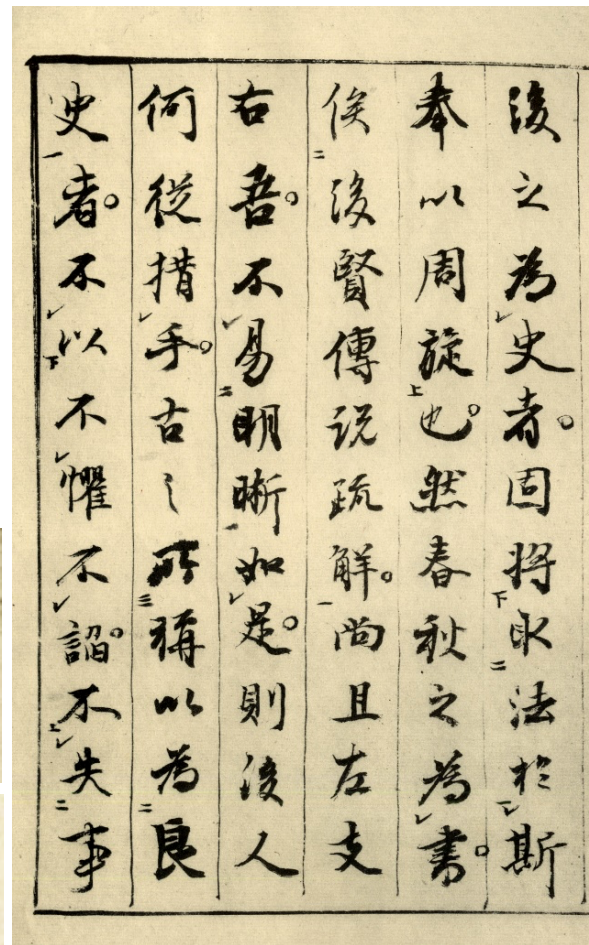 後之為史者固将取法於斯
奉以周旋也然春秋之為書
俟後賢傳説疏解尚且左支
右吾不易明晰如是則後人
何從措手古之所稱以為良
史者不以不懼不諂不失事